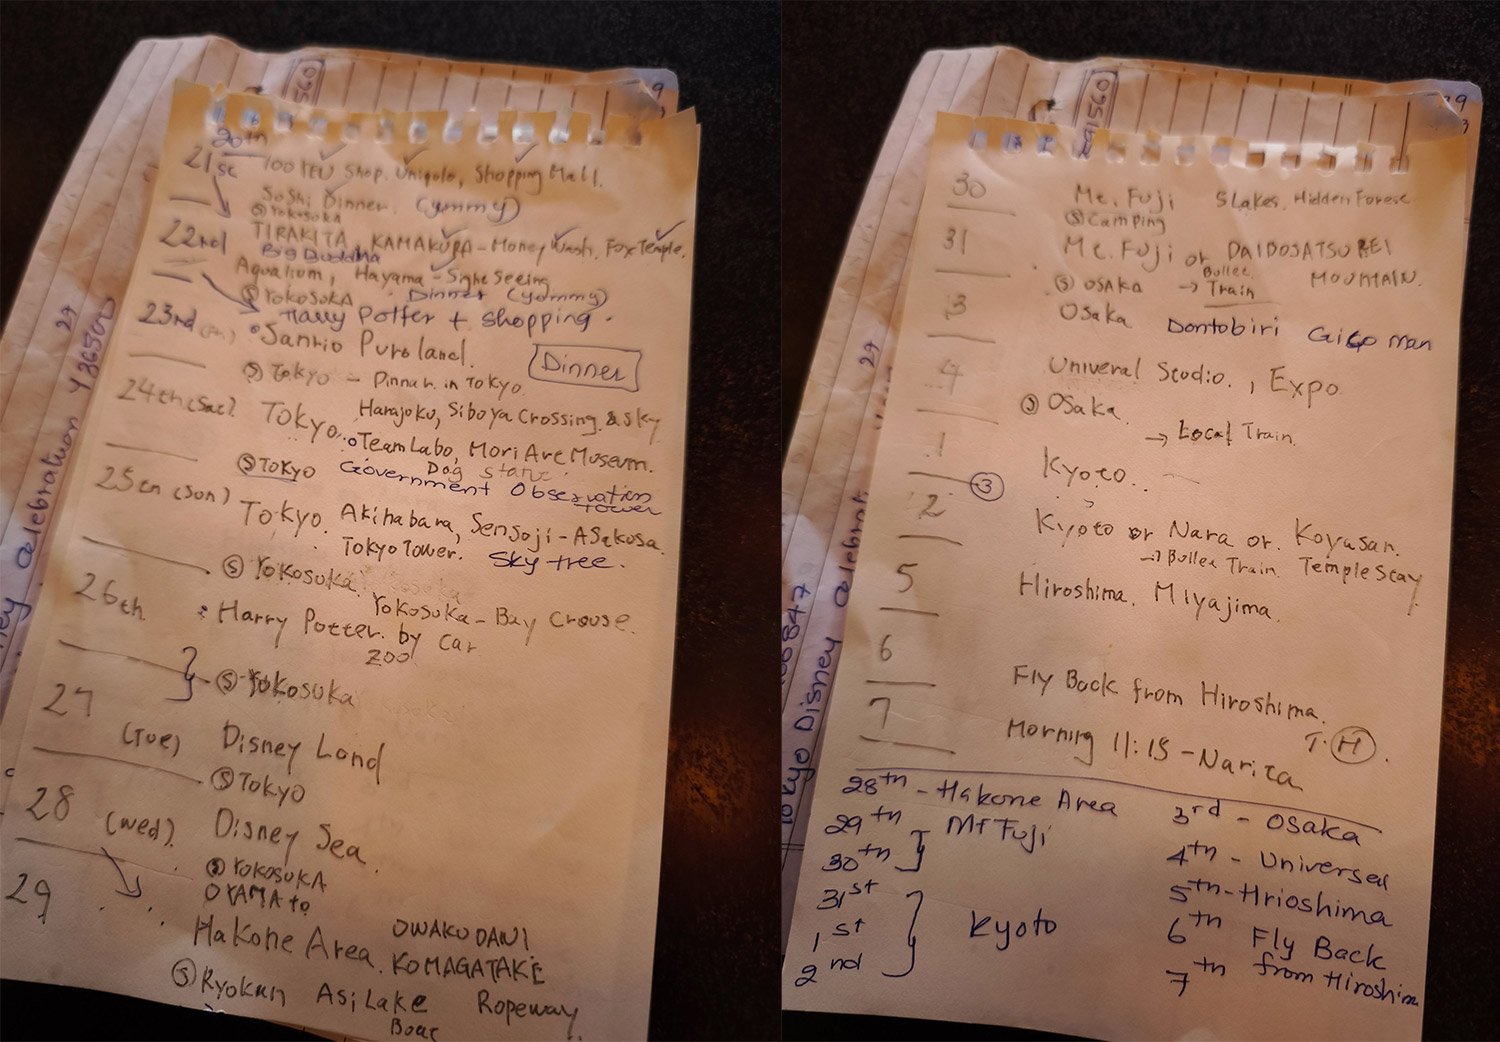 20th
21st 100 YEN Shop. Uniqolo, Shopping Mall.
SoShi Dinner. (yummy)
Ⓢ Yokosuka
22nd TIRAKITA, KAMAKURA - Money Wash, Fox Temple.
Big Buddha
Aqualium, Hayama - Sight Seeing
Ⓢ YOKOSUKA Dinner (yummy)
Harry Potter + Shopping.
23rd Sanrio Puroland. Dinner
Ⓢ Tokyo - Dinner in TOKYO.
24th (Sat) Tokyo. Harajoku, Siboya Crossing & Sky
TeamLabo, Mori Art Museum.
Dog Statue
Ⓢ Tokyo Government Observation
tower
25th (Sun) Tokyo. Akihabara, Sensoji - Asakusa.
Tokyo Tower. Sky tree.
Ⓢ Yokosuka.
Yokosuka - Bay Crouse.
26th Harry Potter. by car
Zoo
Ⓢ Yokosuka
27 (Tue) Disney Land
Ⓢ Tokyo
28 (Wed). Disney Sea
Ⓢ YOKOSUKA
OYAMA to
29 Hakone Area. OWAKUDANI
KOMAGATAKE
Ⓢ Ryokan Asi Lake Ropeway
Boat
560
29
Disney celebration ¥36500
30 Mt. Fuji 5 Lakes. Hidden Forest
Ⓢ Camping
31 Mt. Fuji or DAIBOSATSUREI
MOUNTAIN.
Ⓢ OSAKA → Bullet
Train
3 Osaka Dontobiri Gico man
4 Univeral Studio., Expo
Ⓢ Osaka
→ Local Train.
1 Kyoto..
③
2 Kyoto or Nara or. Koyasan.
→ Bullet Train. Temple Stay
5 Hiroshima. Miyajima.
6
Fly Back from Hiroshima.
7 Morning 11:15 - Narita
T. Ⓗ.
28th - Hakone Area
29th } Mt Fuji
30th
31st
1st } Kyoto
2nd
3rd - OSaka
4th - Universal
5th - Hrioshima
6th Fly Back
7th from Hiroshima
560
29
Tokyo Disney celebrat